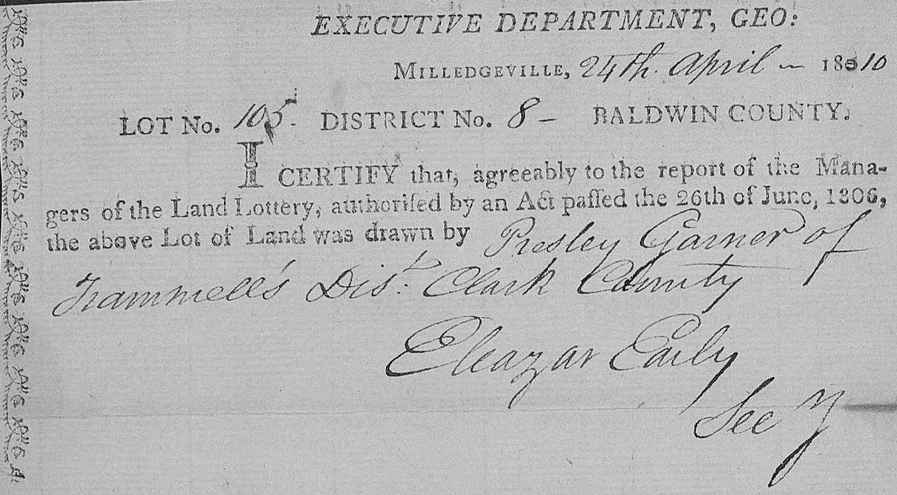 EXECUTIVE DEPARTMENT, GEO:
MILLEDGEVILLE, 24th. April 1810
LOT No. 105. DISTRICT No. 8 — BALDWIN COUNTY.
I CERTIFY that, agreeably to the report of the Mana-
gers of the Land Lottery, authoriſed by an Act paſſed the 26th of June, 1806,
the above Lot of Land was drawn by Presley Garner of
Trammell's Dist. Clark County
Eleazar Early
Secy